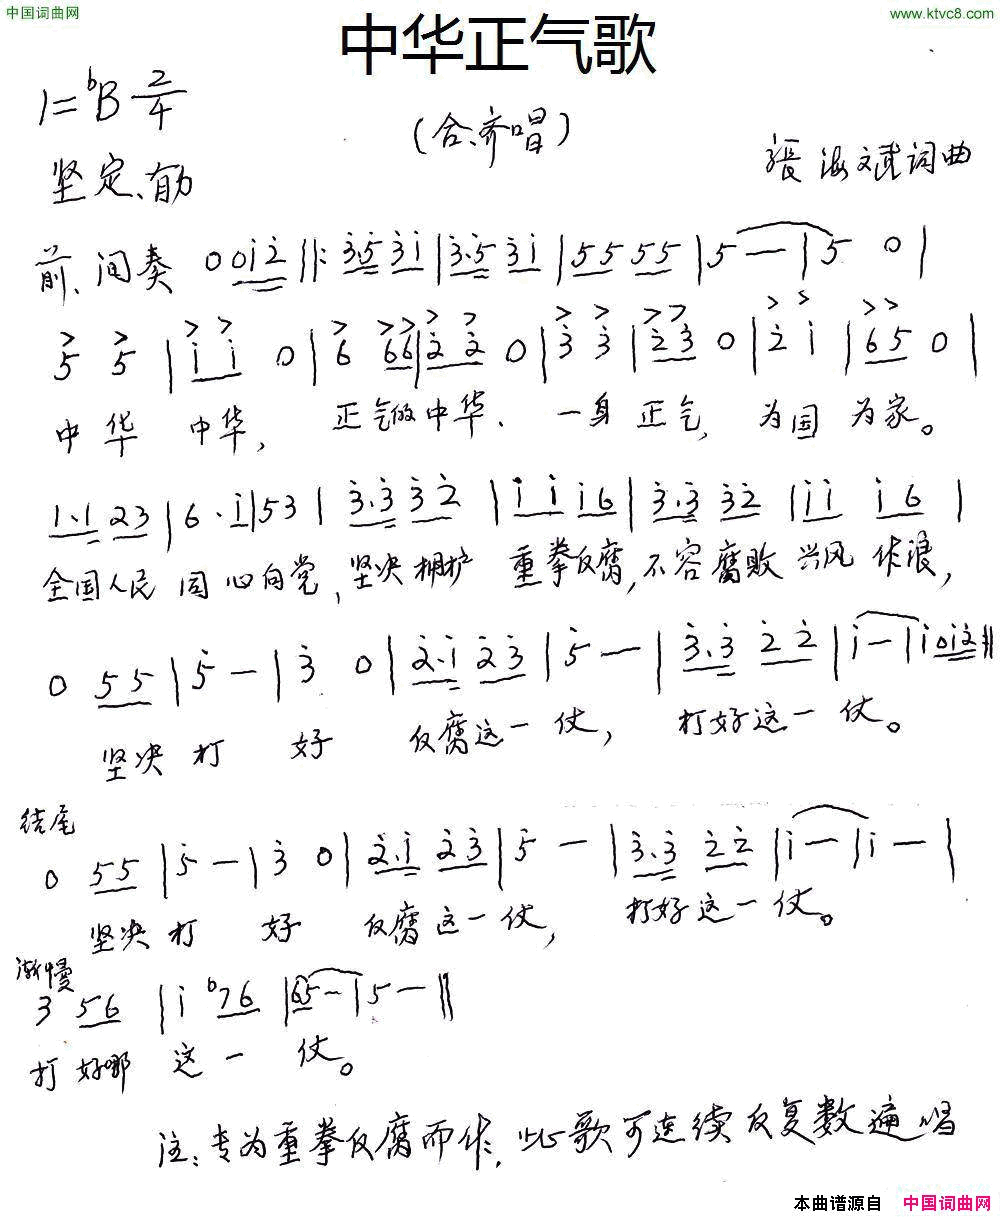 中国词曲网
www.ktvc8.com
中华正气歌
1=ᵇB 2/4
(合、齐唱)
坚定、有力
張海斌词曲
前、间奏 0 0 0 i 2 ‖: 3·5 3 i | 3·5 3 i | 5 5 5 5 | 5 — | 5 0 |
5 5 | i i 0 | 6 6 6 | 2 2 0 | 3 3 | 2 3 0 | 2 i | 6 5 0 |
中华 中华, 正气的中华、一身正气, 为国为家。
1·1 2 3 | 6·i | 5 3 | 3·3 3 2 | i i i 6 | 3·3 3 2 | i i i 6 |
全国人民 同心向党, 坚决拥护 重拳反腐, 不容腐败 兴风作浪,
0 5 5 | 5 — | 3 0 | 2·i 2 3 | 5 — | 3·3 2 2 | i — | i 0 i 2 :‖
坚决打 好 反腐这一仗, 打好这一仗。
结尾
0 5 5 | 5 — | 3 0 | 2·i 2 3 | 5 — | 3·3 2 2 | i — | i — |
坚决打 好 反腐这一仗, 打好这一仗。
渐慢
3 5 6 | i ᵇ7 6 | 6 5 — | 5 — ‖
打好哪 这一 仗。
注:专为重拳反腐而作,此歌可连续反复数遍唱
本曲谱源自 中国词曲网